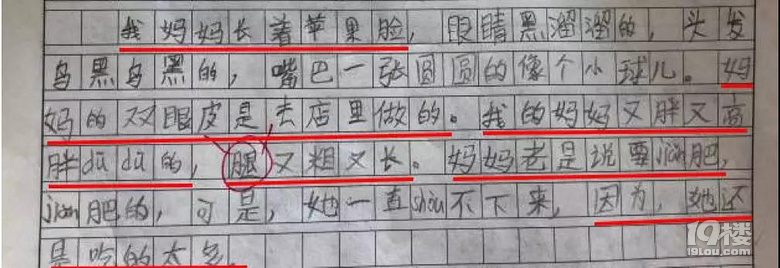 我妈妈长着苹果脸，眼睛黑溜溜的，头发
乌黑乌黑的，嘴巴一张圆圆的像个小球儿。妈
妈的双眼皮是去店里做的。我的妈妈又胖又高
胖dū dū的，腿又粗又长。妈妈老是说要jiǎn肥，
jiǎn肥的，可是，她一直shòu不下来，因为，她还
是吃的太多。
19楼
19lou.com